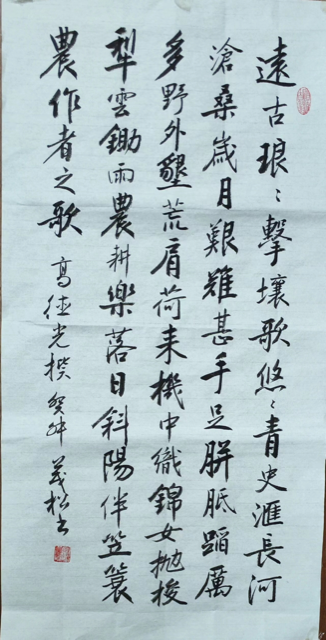 遠古琅〻擊壤歌悠〻青史滙長河
滄桑歲月艱難甚手足胼胝蹈厲
多野外墾荒肩荷耒機中織錦女抛梭
犁雲鋤雨農耕樂落日斜陽伴笠蓑
農作者之歌
高德光撰癸卯茂松書